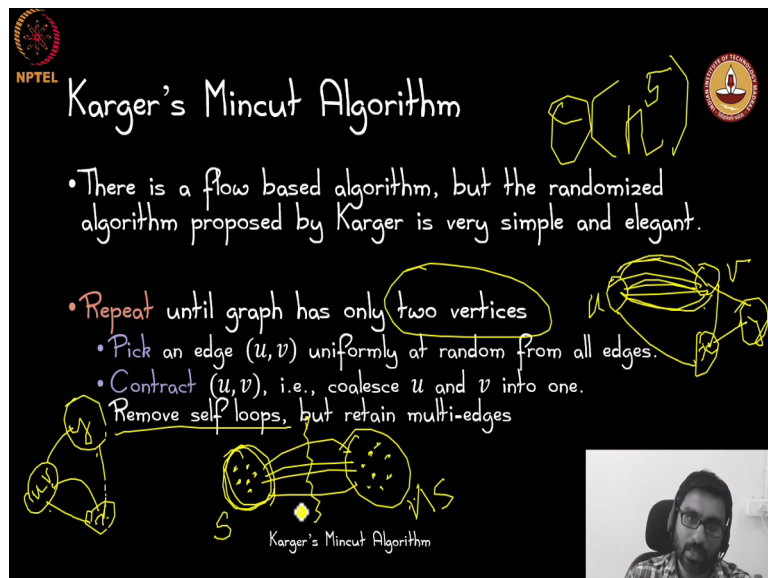 NPTEL
Karger's Mincut Algorithm
Θ(n⁵)
INDIAN INSTITUTE OF TECHNOLOGY MADRAS
•There is a flow based algorithm, but the randomized
algorithm proposed by Karger is very simple and elegant.
u v
•Repeat until graph has only two vertices
•Pick an edge (u,v) uniformly at random from all edges.
•Contract (u,v), i.e., coalesce u and v into one.
Remove self loops, but retain multi-edges
y
uv
S V\S
Karger's Mincut Algorithm